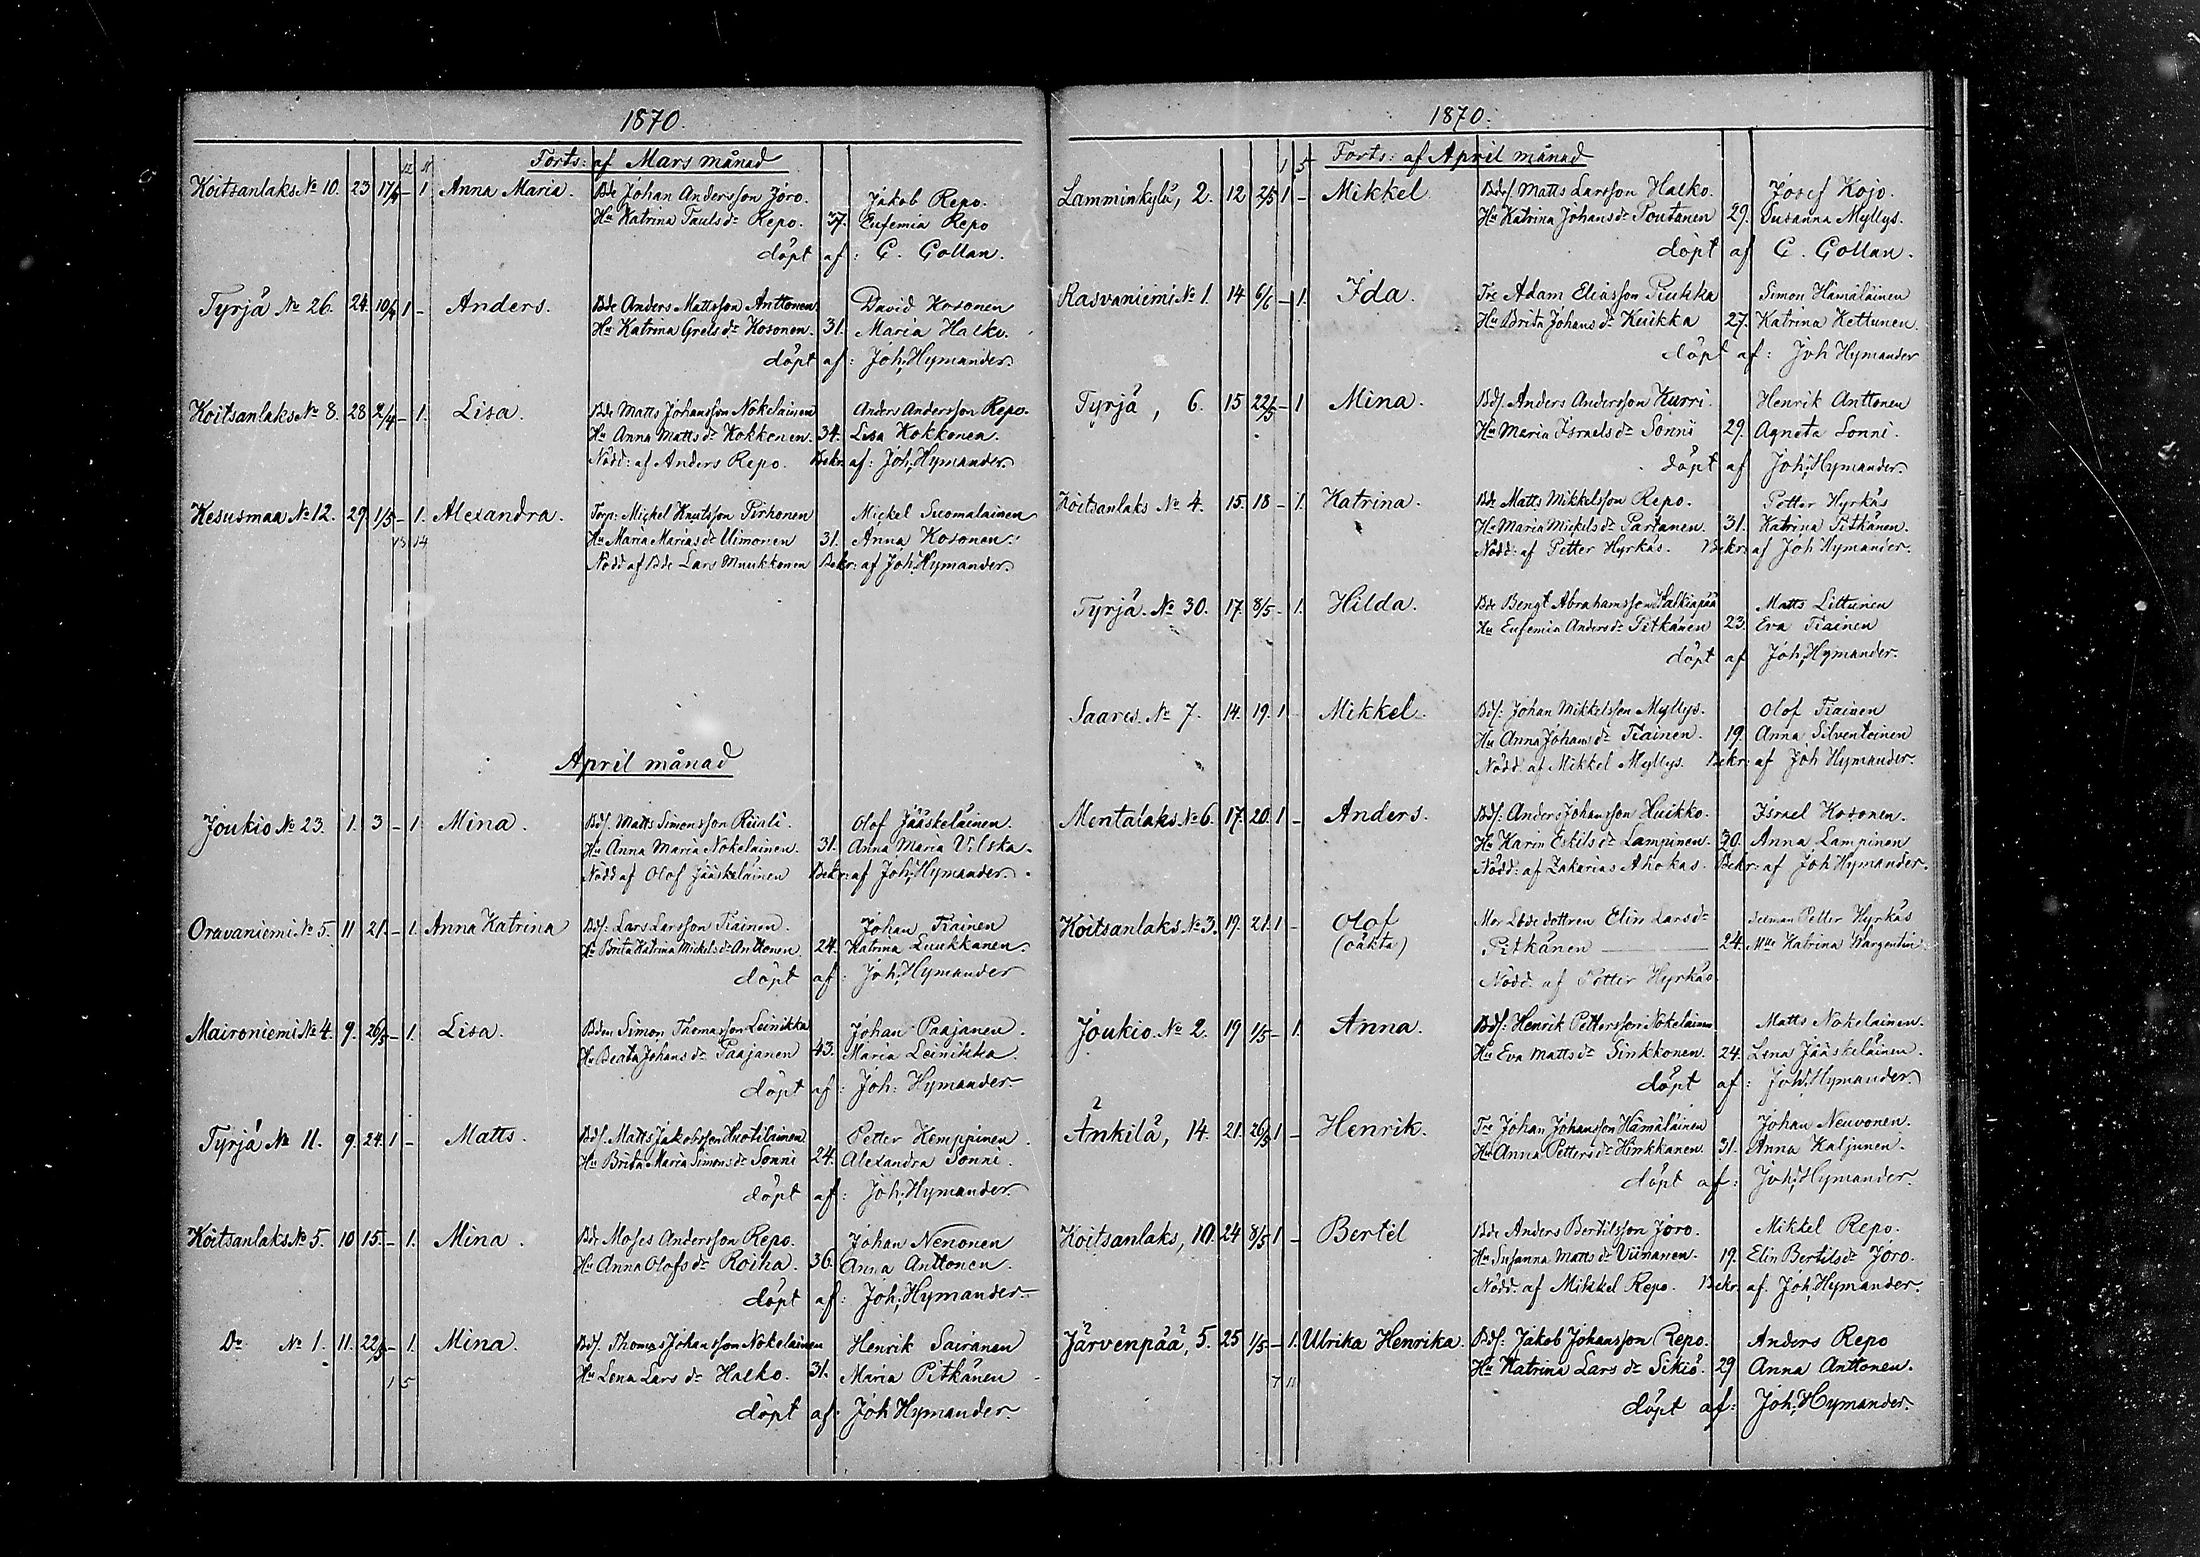 1870.
Forts: af Mars månad
12 11
Koitsanlaks No 10. 23 17/4 – 1. Anna Maria. Bde Johan Andersson Joro. Jakob Repo.
Hu Katrina Paulsdr Repo. 37. Eufemia Repo
döpt af: C. Gollan.
Tyrjä No 26. 24. 10/4 1 – Anders. Bde Anders Mattsson Anttonen David Kosonen
Hu Katrina Grelsdr Kosonen. 31. Maria Halko.
döpt af: Joh: Hymander.
Koitsanlaks No 8. 28 2/4 – 1. Lisa. Bde Matts Johansson Nokelainen Anders Andersson Repo.
Hu Anna Mattsdr Kokkonen. 34. Lisa Kokkonen.
Nödd: af Anders Repo. Bekr: af: Joh: Hymander.
Kesusmaa No 12. 29. 1/5 – 1. Alexandra. Torp: Mickel Knutsson Pirhonen Mickel Suomalainen
13 14 Hu Maria Mariasdr Uimonen 31. Anna Kosonen.
Nödd af Bde Lars Muukkonen Bekr: af Joh: Hymander.
April månad
Joukio No 23. 1. 3 – 1 Mina. Bds. Matts Simonsson Riiali. Olof Jääskeläinen.
Hu Anna Maria Nokelainen. 31. Anna Maria Vilska.
Nödd af Olof Jääskeläinen Bekr: af Joh: Hymander.
Oravaniemi No 5. 11 21. – 1. Anna Katrina Bds: Lars Larsson Tiainen. Johan Tiainen
Hu Brita Katrina Mickelsdr Anttonen. 24. Katrina Luukkanen.
döpt af: Joh: Hymander
Maironiemi No 4. 9. 26/5 – 1. Lisa. Bden Simon Thomasson Leinikka Johan Paajanen.
Hu Beata Johansdr Paajanen 43. Maria Leinikka.
döpt af: Joh: Hymander
Tyrjä No 11. 9. 24. 1 – Matts. Bds. Matts Jakobsson Huotilainen Petter Kemppinen.
Hu Brita Maria Simonsdr Sonni 24. Alexandra Sonni.
döpt af: Joh: Hymander.
Koitsanlaks No 5. 10 15. – 1. Mina. Bde Moses Andersson Repo. Johan Nenonen
Hu Anna Olofsdr Roiha. 36. Anna Anttonen.
döpt af: Joh: Hymander.
Do No 1. 11. 22/5 – 1. Mina. Bds. Thomas Johansson Nokelainen Henrik Sairanen
1 5 Hu Lena Larsdr Halko. 31. Maria Pitkänen
döpt af: Joh Hymander.
1870.
1 5 Forts: af April månad
Lamminkylä, 2. 12 2/5 1 – Mikkel. Bds Matts Larsson Halko. Josef Kojo.
Hu Katrina Johansdr Poutanen 29. Susanna Myllys.
döpt af C. Gollan.
Rasvaniemi No 1. 14 6/6 – 1. Ida. Tre Adam Eliasson Piukka Simon Hämäläinen
Hu Brita Johansdr Kuikka 27. Katrina Kettunen.
döpt af: Joh Hymander
Tyrjä, 6. 15 22/5 – 1 Mina. Bds Anders Andersson Kurri. Henrik Anttonen
Hu Maria Israelsdr Sonni 29. Agneta Sonni.
döpt af Joh: Hymander.
Koitsanlaks No 4. 15. 18 – 1. Katrina. Bde Matts Mikkelsson Repo. Petter Hyrkäs
Hu Maria Mickelsdr Partanen. 31. Katrina Pitkänen.
Nödd: af Petter Hyrkäs. Bekr: af Joh Hymander.
Tyrjä. No 30. 17. 8/5 – 1. Hilda. Bde Bengt Abrahamsson Halkiapää Matts Littunen
Hu Eufemia Andersdr Pitkänen 23. Eva Tiainen
döpt af Joh: Hymander.
Saares. No 7. 14. 19. 1 Mikkel. Bds: Johan Mikkelsson Myllys. Olof Tiainen
Hu Anna Johansdr Tiainen. 19. Anna Silventoinen
Nödd. af Mikkel Myllys. Bekr: af Joh Hymander.
Mentalaks No 6. 17. 20. 1 – Anders. Bds. Anders Johansson Huikko. Israel Kosonen.
Hu Karin Eskilsdr Lampinen. 30. Anna Lampinen
Nödd: af Zakarias Ahokas. Bekr: af Joh Hymander.
Koitsanlaks No 3. 19. 21. 1 – Olof Mor Lbde dottren Elin Larsdr Petter Hyrkäs
(oäkta) Pitkänen 24. Mlle Katrina Wargentin
Nödd. af Petter Hyrkäs
Joukio. No 2. 19 1/5 – 1. Anna. Bds: Henrik Pettersson Nokelainen Matts Nokelainen.
Hu Eva Mattsdr Sinkkonen. 24. Lena Jääskeläinen.
döpt af: Joh. Hymander.
Änkilä, 14. 21. 26/5 1 – Henrik. Tre Johan Johansson Hämäläinen Johan Neuvonen.
Hu Anna Pettersdr Hinkkanen. 31. Anna Kaljunen.
döpt af: Joh: Hymander.
Koitsanlaks, 10. 24 8/5 1 – Bertel Bde Anders Bertilsson Joro. Mikkel Repo.
Hu Susanna Mattsdr Viinanen. 19. Elin Bertilsdr Joro.
Nödd. af Mikkel Repo. Bekr: af. Joh: Hymander.
Järvenpää, 5. 25 1/5 – 1. Ulrika Henrika. Bds: Jakob Johansson Repo. Anders Repo
7 11 Hu Katrina Larsdr Sikiö. 29 Anna Anttonen.
döpt af: Joh: Hymander.